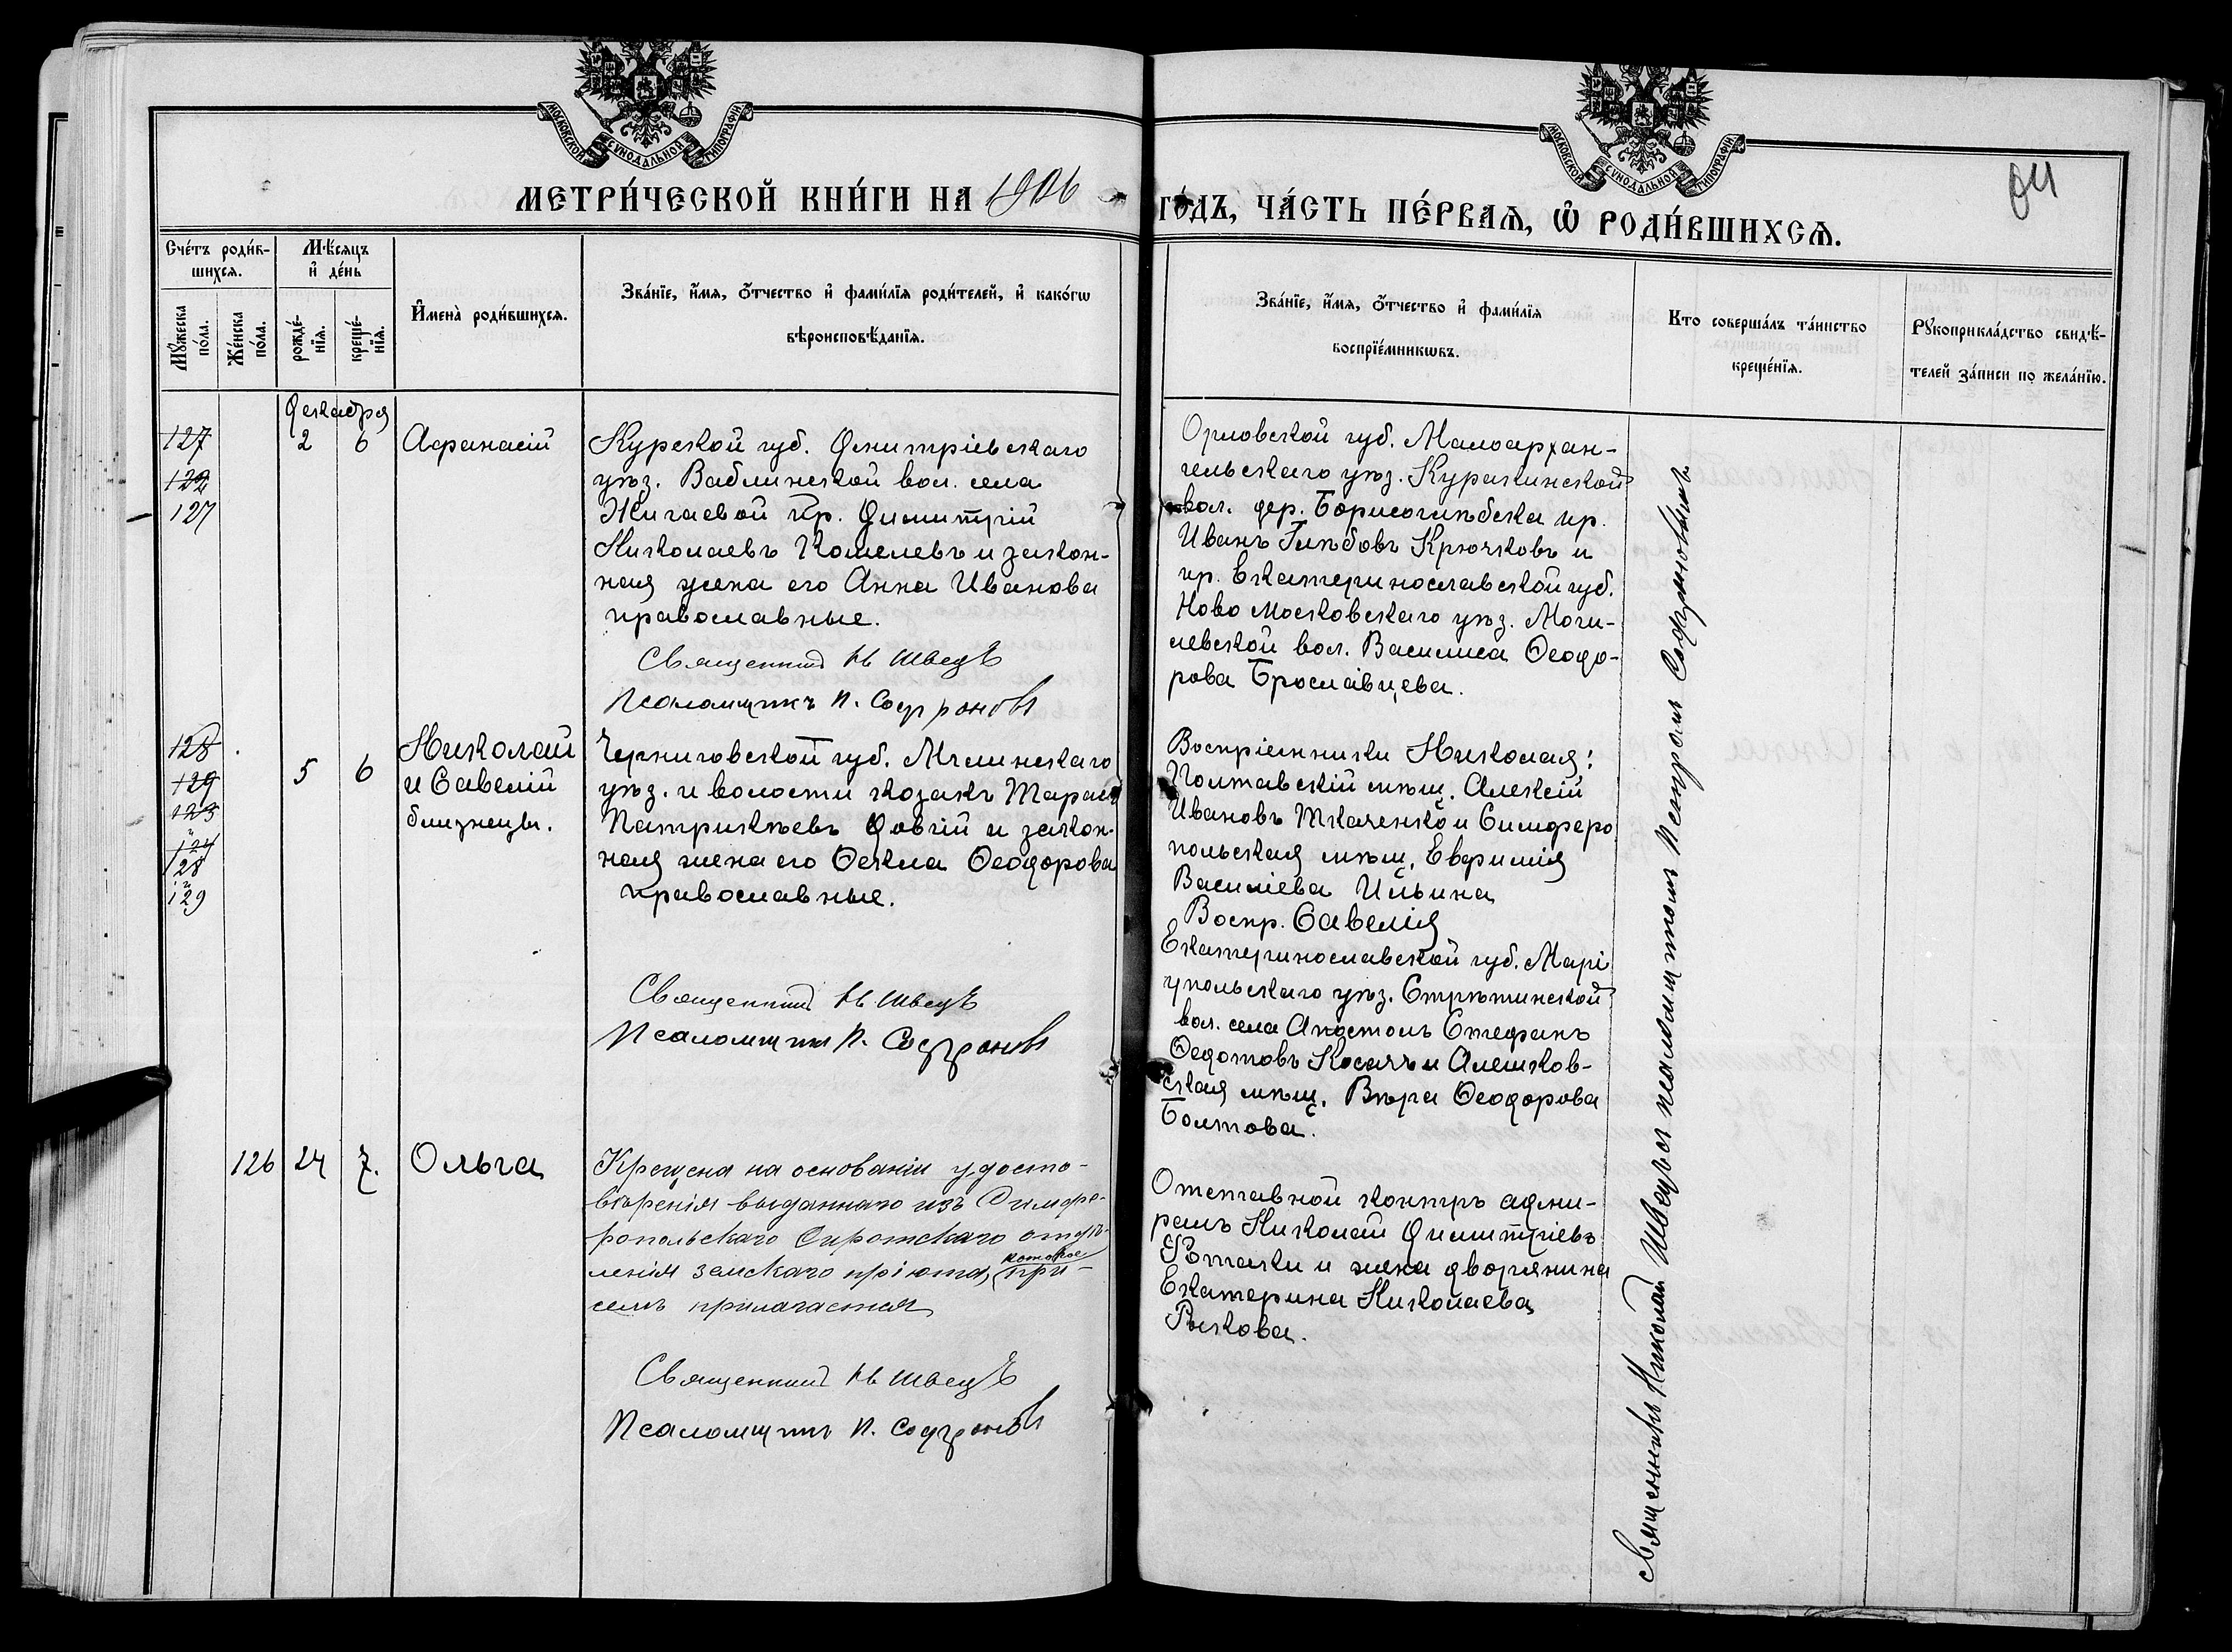 МОСКОВСКОЙ СѴНОДАЛЬНОЙ ТИПОГРАФІИ
МОСКОВСКОЙ СѴНОДАЛЬНОЙ ТИПОГРАФІИ
МЕТРИ́ЧЕСКОЙ КНИ́ГИ НА 1906 ГО́ДЪ, ЧА́СТЬ ПЕ́РВАѦ, Ѡ҆ РОДИ́ВШИХСѦ.
64
Сче́тъ роди́в-
шихсѧ.
Мѣ́сѧцъ
и҆ де́нь
Мꙋ́жеска
по́ла.
Же́нска
по́ла.
рожде́-
нїѧ.
креще́-
нїѧ.
И҆мена̀ роди́вшихсѧ.
Зва́нїе, и҆́мѧ, ѻ҆́тчество и҆ фами́лїѧ роди́телей, и҆ како́гѡ
вѣроисповѣ́данїѧ.
Зва́нїе, и҆́мѧ, ѻ҆́тчество и҆ фами́лїѧ
воспрїе́мникѡвъ.
Кто соверша́лъ та́инство
креще́нїѧ.
Рꙋкоприкла́дство свидѣ́-
телей за́писи по жела́нїю.
Декабря
127
122
127
2 6
Афанасій
Курской губ. Дмитріевскаго
уѣз. Ваблинской вол. села
Жигаевой кр. Димитрій
Николаевъ Кошелевъ и закон-
ная жена его Анна Иванова
православные.
Священникъ Н. Швецъ
Псаломщикъ П. Софроновъ
Орловской губ. Малоархан-
гельскаго уѣз. Куракинской
вол. дер. Борисоглѣбска кр.
Иванъ Глѣбовъ Крючковъ и
кр. Екатеринославской губ.
Ново Московскаго уѣз. Моги-
левской вол. Василиса Ѳеодо-
рова Брославцева.
128
129
123
и
124
128
и
129
5 6
Николай
и Савелій
близнецы.
Черниговской губ. Мглинскаго
уѣз. и волости козакъ Тарасъ
Патрикѣевъ Довгій и закон-
ная жена его Ѳекла Ѳеодорова
православные.
Священникъ Н. Швецъ
Псаломщикъ П. Софроновъ
Воспріемники Николая:
Полтавскій мѣщ. Алексій
Ивановъ Ткаченко и Симферо
польская мѣщ. Евфимія
Василіева Ильина
Воспр. Савелія
Екатеринославской губ. Марі
упольскаго уѣз. Стрѣтинской
вол. села Апостолъ Стефанъ
Ѳедотовъ Косачъ и Алешков-
ская мѣщ. Вѣра Ѳеодорова
Болтова.
126 24 7.
Ольга
Крещена на основаніи удосто-
вѣренія выданнаго изъ Симфе-
ропольскаго Сиротскаго отдѣ-
ленія земскаго пріюта, которое при-
семъ прилагается
Священникъ Н. Швецъ
Псаломщикъ П. Софроновъ
Отставной контръ адми-
ралъ Николай Димитріевъ
и жена дворянина
Екатерина Николаева
Рыкова.
Священникъ Николай Швецъ съ псаломщикомъ Петромъ Софроновымъ